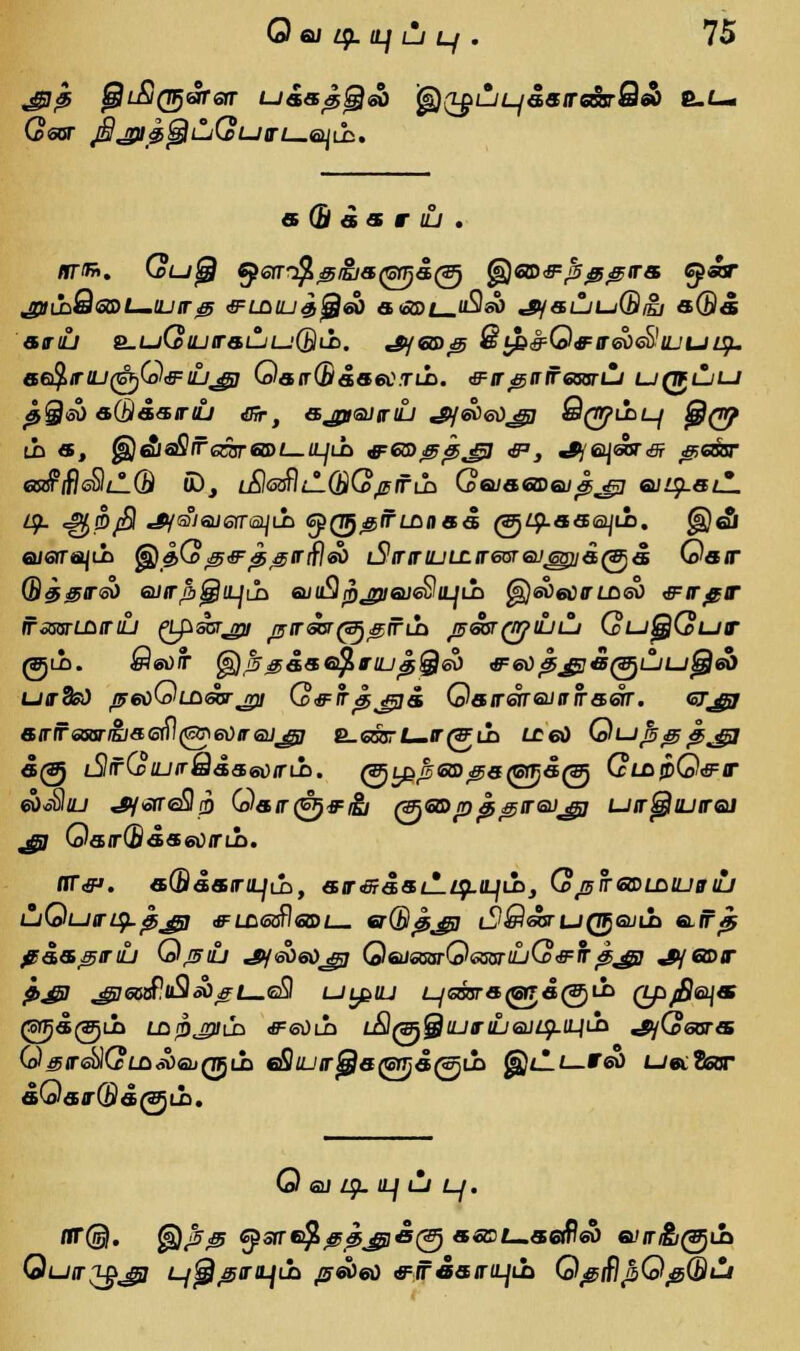 வெடியுப்பு. 75
அத் திமிருள்ள பக்கத்தில் இழுப்புக்காண்கில் உட
னே நிறுத்திப்போடவும்.
கடுக்காய்.
ராஈ. பேதி ஔஷதங்களுக்கு இசைந்ததாக ஒன்
றும்கிடையாத சமயத்தில் கடையில் அகப்படுங் கடுக்
காய் உபயோகப்படும். அதை கீழ்ச்சொல்லியபடி
கஷாயஞ்செய்து கொடுக்கலாம். சாதாரணப் பழுப்பு
த்தில் கடுக்காய் ச, கறுவாய் அல்லது கிரும்பு திரு
ம் க, இவ்விரண்டையும் சதைத்து ச, அவுன்ச தண்
ணீரிலிட்டு ய, மினிட்டுநேரம் வேகவைத்து வடிகட்
டி ஆறி அவ்வளவும் ஒருதரமாகக் குடிக்கவும். இவ்
வளவும் இத்தேசத்தாரில் பிராயமானவனுக்குக் கொ
டுத்தால் வாந்தியும் வயிற்றுவலியும் இல்லாமல் சாதா
ரணமாய் மூன்று நான்குதரம் நன்றாய்ப் பேதிபோ
கும். சிலர் இந்தக்கஷாயத்தில் சலத்துக்குப்பதில்
பாலை நலமென்று சேர்த்துக் கொள்வார்கள். எது
காரணங்களினாலாவது உண்டாகும் மல பெந்தத்து
க்கு பிரயோகிக்கலாம். குழந்தைகளுக்கு மேற்சொ
ல்லிய அளவிற் கொஞ்சங் குறைத்தாவது பாதியாவ
து கொடுக்கலாம்.
ராச. கடுக்காயும், காசுக்கட்டியும், நேர்மையாய்
ப்பொடித்து சமனிடை எடுத்து பிகின்பழுவும் கூர்த்
தீக்கதாய் நெய் அல்லது வெண்ணெய்சேர்த்து அரை
த்து துணியில்தடவி பழய புண்களுக்கும் முறிவுக
ளுக்கும் மற்றும் சலம் மிகுதியாய்வடியும் அநேக
தொலிமேல்வரும் வியாதிகளுக்கும் இட்டால் பலன்
கொடுக்கும்.
வெடியுப்பு.
ரா௫. இந்த ஔஷதத்துக்கு கடைகளில் வாங்கும்
பொழுது புதிதாயும் நல்ல சீர்காயும் தெரிந்தெடுப்